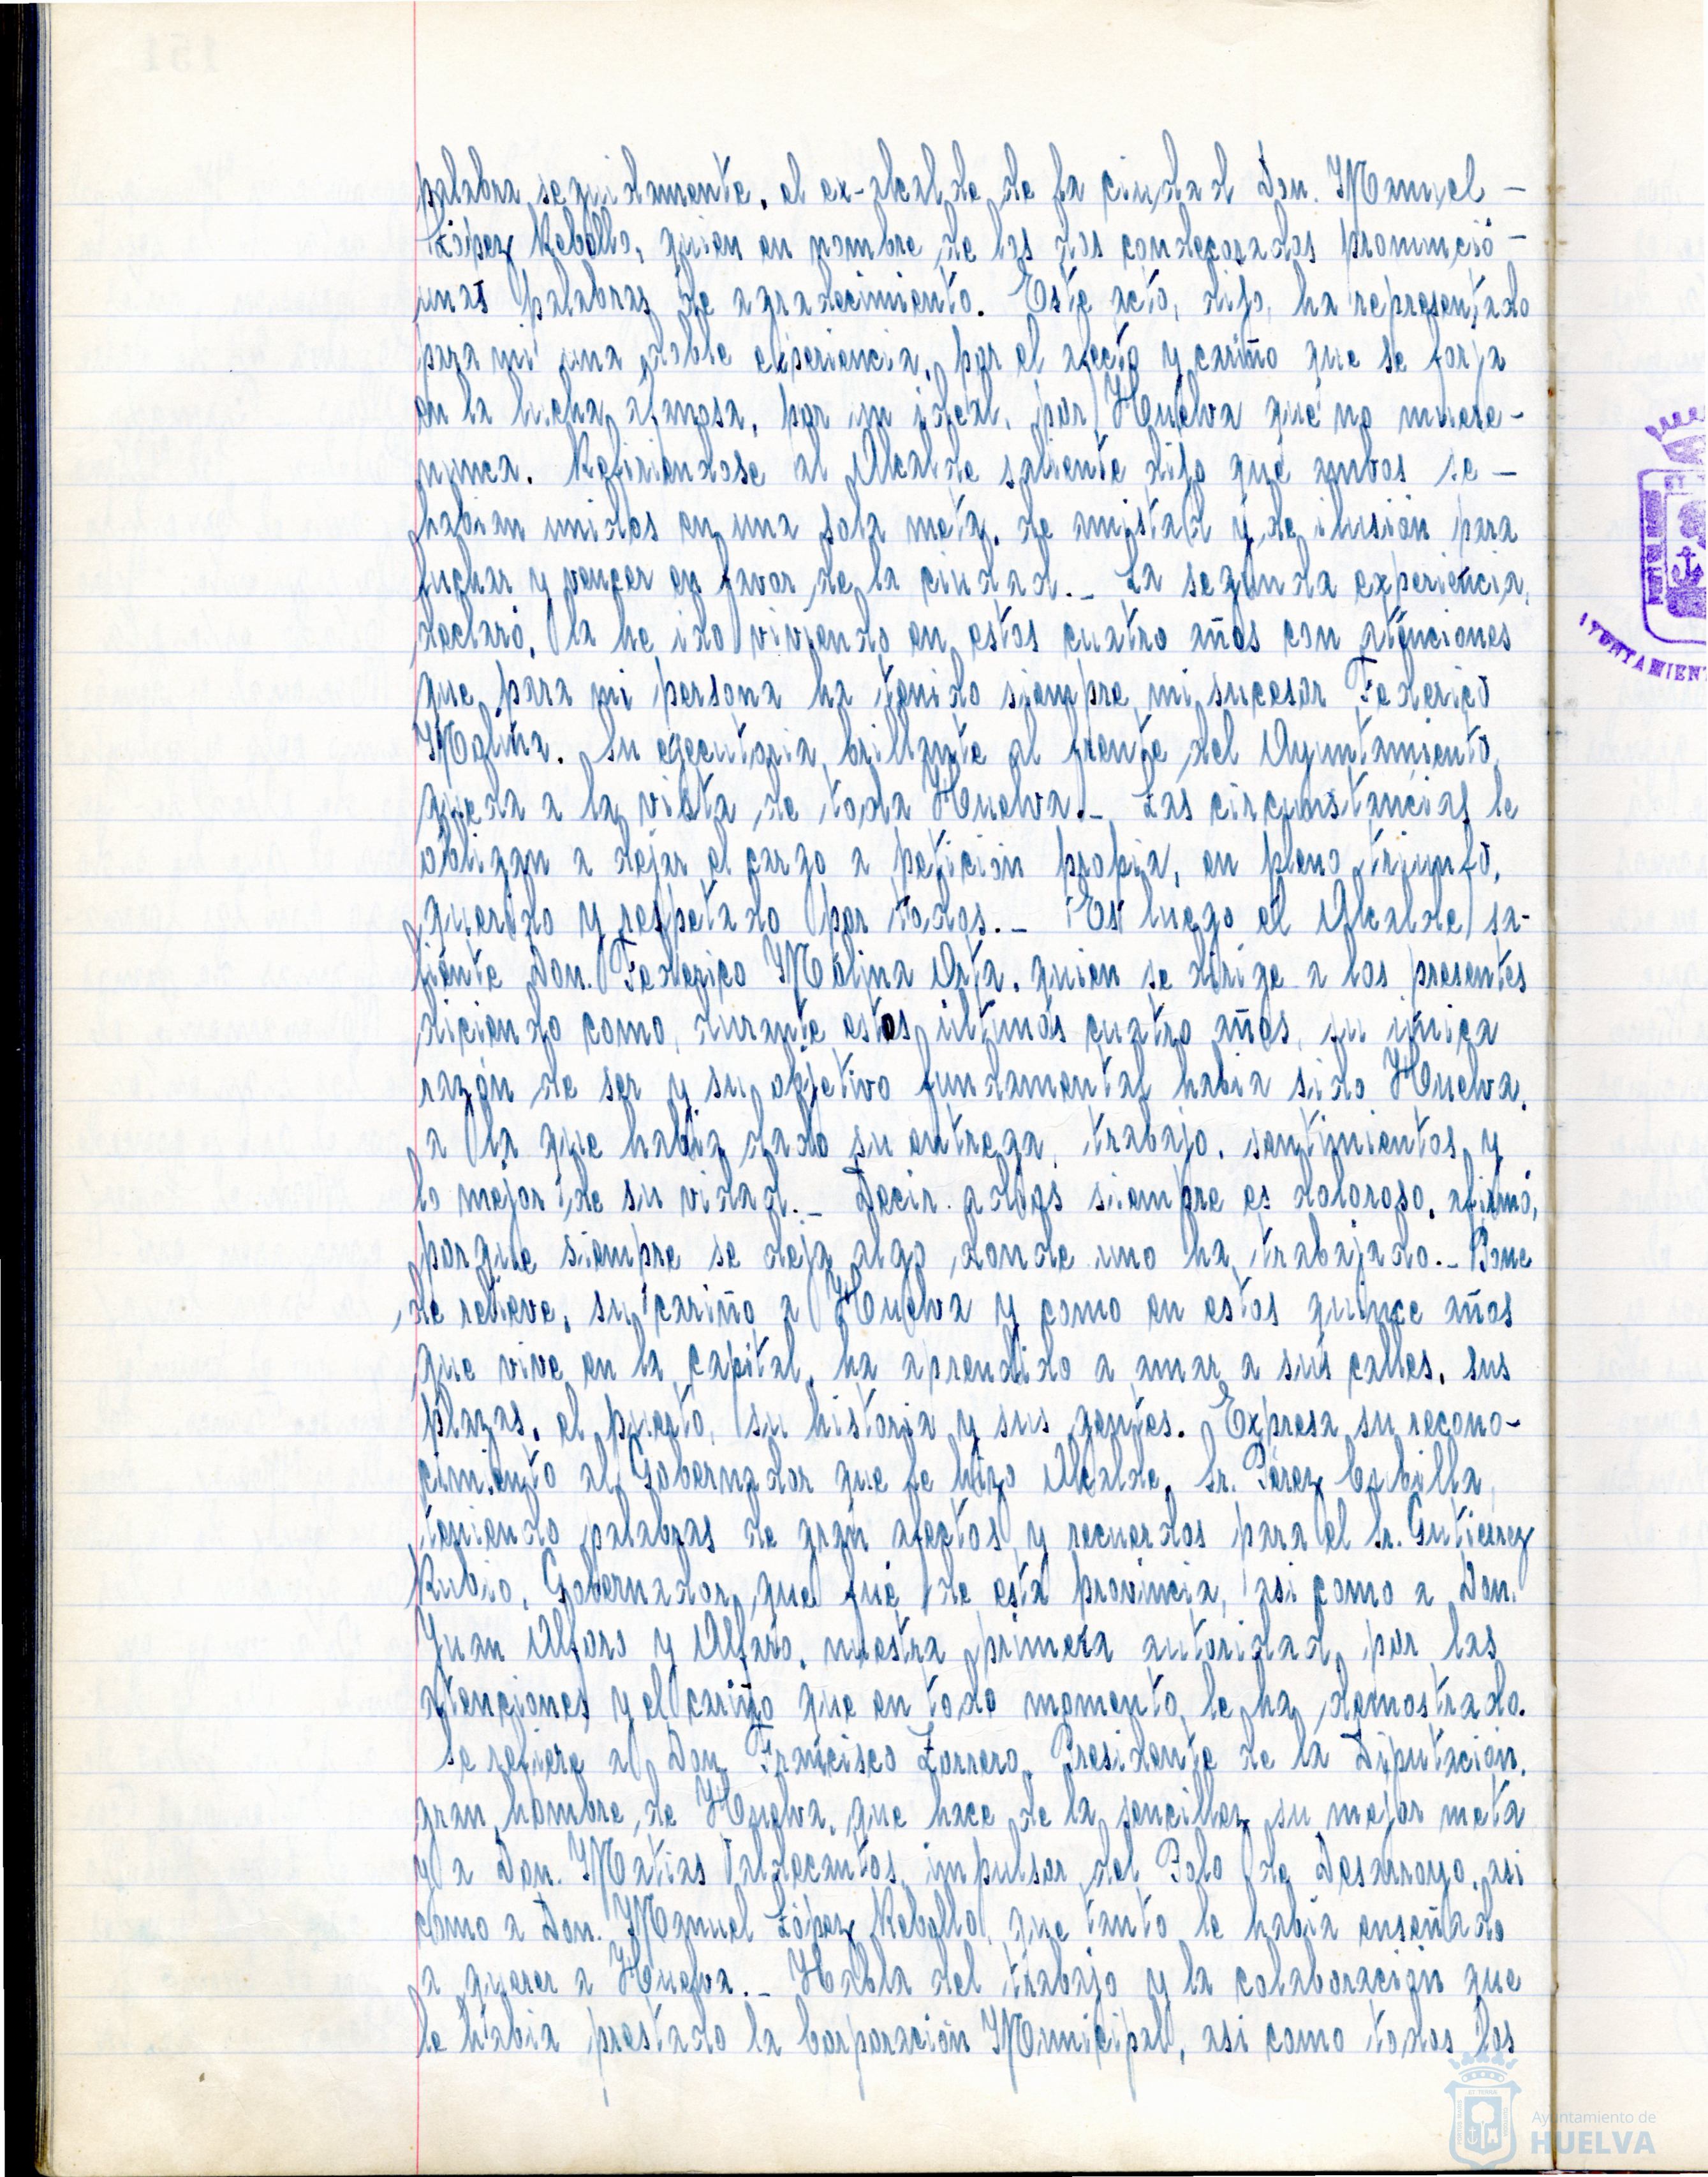 palabra seguidamente, el ex-alcalde de la ciudad Don. Manuel -
López Rebollo, quien en nombre de los dos condecorados pronunció -
unas palabras de agradecimiento. Este acto, dijo, ha representado
para mi una doble experiencia, por el afecto y cariño que se forja
en la lucha afanosa, por un ideal, por Huelva que no muere -
nunca. Refiriendose al Alcalde saliente dijo que ambos se -
habian unidos en una sola meta, de amistad y de ilusión para
luchar y vencer en favor de la ciudad._ La segunda experiencia,
declaró, la he ido viviendo en estos cuatro años con atenciones
que para mi persona ha tenido siempre mi sucesor Federico
Molina. Su ejecutoria brillante al frente del Ayuntamiento,
queda a la vista de toda Huelva._ Las circunstancias le
obligan a dejar el cargo a petición propia, en pleno triunfo,
querido y respetado por todos._ Es luego el Alcalde sa-
liente Don. Federico Molina Orta, quien se dirige a los presentes
diciendo como, durante estos últimos cuatro años, su única
razón de ser y su objetivo fundamental habia sido Huelva,
a la que habia dado su entrega, trabajo, sentimientos y
lo mejor de su vidad._ Decir adios siempre es doloroso, afirmó,
porque siempre se deja algo donde uno ha trabajado._ Pone
de relieve, su cariño a Huelva y como en estos quince años
que vive en la capital, ha aprendido a amar a sus calles, sus
plazas, el puerto, su historia y sus gentes. Expresa su recono-
cimiento al Gobernador que le hizo Alcalde, Sr. Pérez Cubilla,
teniendo palabras de gran afectos y recuerdos para el Sr. Gutierrez
Rubio, Gobernador que fué de esta provincia, asi como a Don.
Juan Alfaro y Alfaro, nuestra primera autoridad, por las
atenciones y el cariño que en todo momento le ha demostrado.
Se refiere a Don Francisco Zorrero, Presidente de la Diputación,
gran hombre de Huelva, que hace de la sencillez su mejor meta
y a Don. Matias Valdecantos, impulsor del Polo de Desarroyo, asi
como a Don. Manuel López Rebollo, que tanto le habia enseñado
a querer a Huelva._ Habla del trabajo y la colaboración que
le habia prestado la Corporación Municipal, asi como todos los
Ayuntamiento de
HUELVA